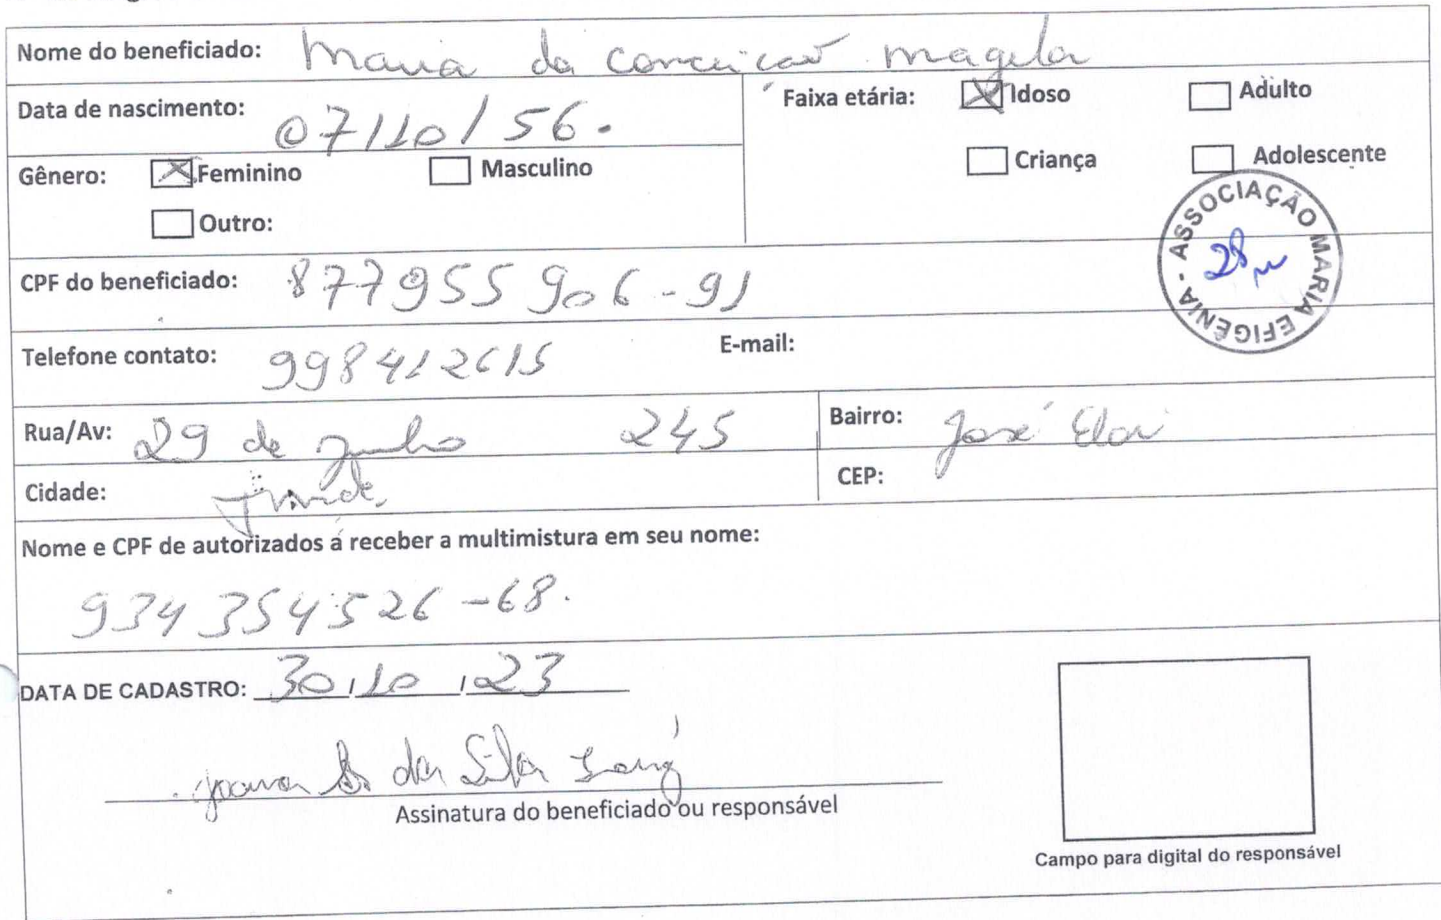 Nome do beneficiado: Maria da conceicaõ magela
Data de nascimento: 07/10/56.
Faixa etária: X Idoso Adulto
Criança Adolescente
Gênero: X Feminino Masculino
Outro:
ASSOCIAÇÃO MARIA EFIGÊNIA -
28
CPF do beneficiado: 877955906-91
Telefone contato: 998412615 E-mail:
Rua/Av: 29 de Junho 245 Bairro: José Eloi
Cidade: CEP:
Nome e CPF de autorizados a receber a multimistura em seu nome:
934354526-68.
DATA DE CADASTRO: 30/10/23
da Silva
Assinatura do beneficiado ou responsável
Campo para digital do responsável